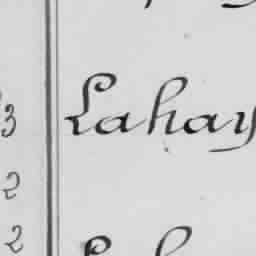 3 Lahay
2
2